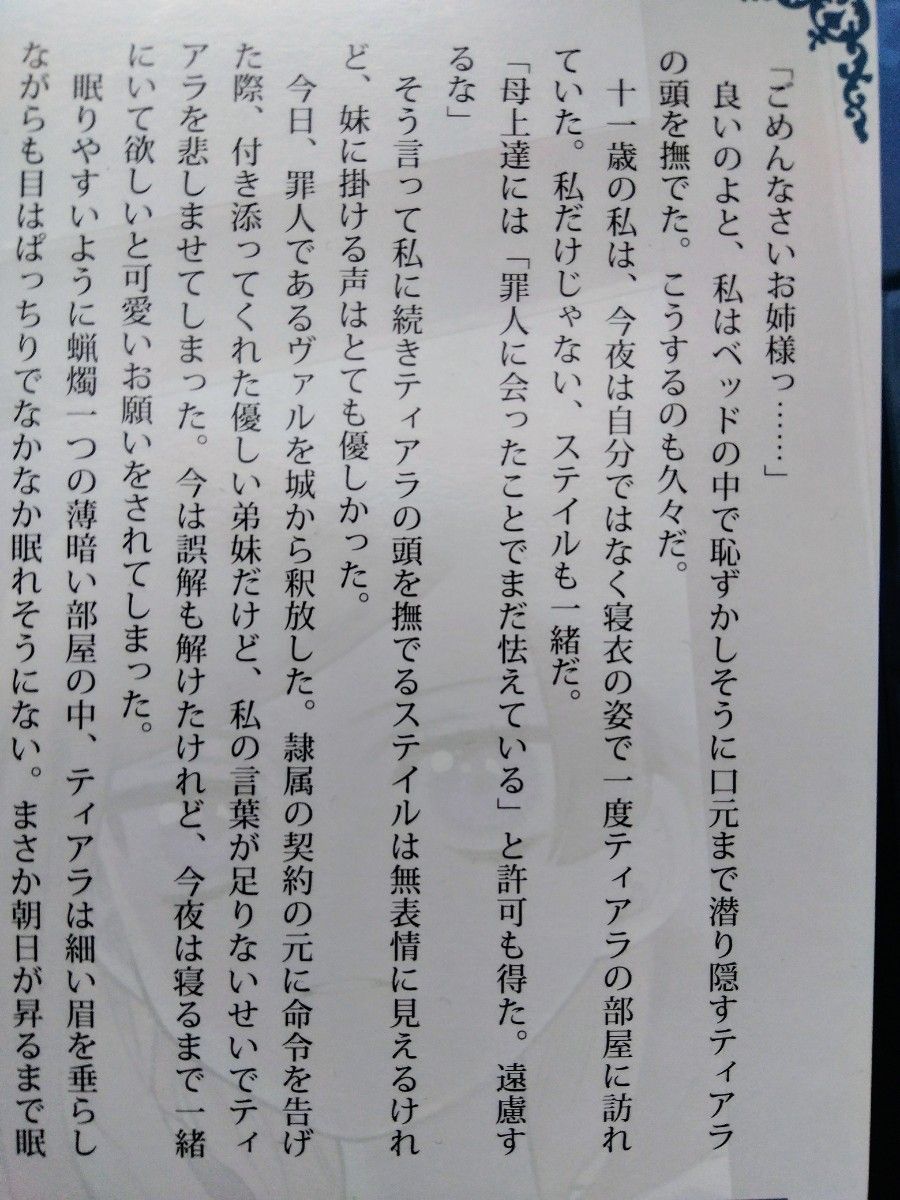 「ごめんなさいお姉様っ……」
良いのよと、私はベッドの中で恥ずかしそうに口元まで潜り隠すティアラ
の頭を撫でた。こうするのも久々だ。
十一歳の私は、今夜は自分ではなく寝衣の姿で一度ティアラの部屋に訪れ
ていた。私だけじゃない、ステイルも一緒だ。
「母上達には「罪人に会ったことでまだ怯えている」と許可も得た。遠慮す
るな」
そう言って私に続きティアラの頭を撫でるステイルは無表情に見えるけれ
ど、妹に掛ける声はとても優しかった。
今日、罪人であるヴァルを城から釈放した。隷属の契約の元に命令を告げ
た際、付き添ってくれた優しい弟妹だけど、私の言葉が足りないせいでティ
アラを悲しませてしまった。今は誤解も解けたけれど、今夜は寝るまで一緒
にいて欲しいと可愛いお願いをされてしまった。
眠りやすいように蝋燭一つの薄暗い部屋の中、ティアラは細い眉を垂らし
ながらも目はぱっちりでなかなか眠れそうにない。まさか朝日が昇るまで眠